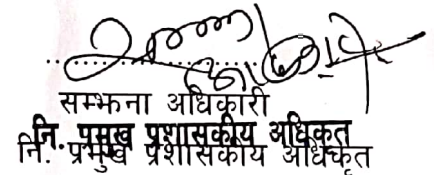 सम्झना अधिकारी
नि. प्रमुख प्रशासकीय अधिकृत
नि. प्रमुख प्रशासकीय अधिकृत